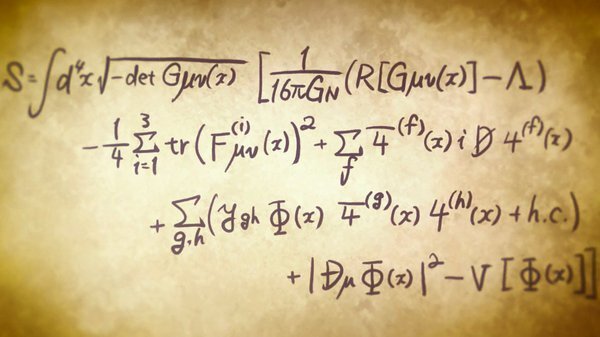 S = ∫ d⁴x √(-det Gμν(x)) [ 1/(16πG_N) (R[Gμν(x)] - Λ)
- 1/4 Σ_{i=1}^{3} tr(F_{μν}^{(i)}(x))² + Σ_f ψ̄^{(f)}(x) i D̸ ψ^{(f)}(x)
+ Σ_{g,h} (y_{gh} Φ(x) ψ̄^{(g)}(x) ψ^{(h)}(x) + h.c.)
+ |D_μ Φ(x)|² - V[Φ(x)]]